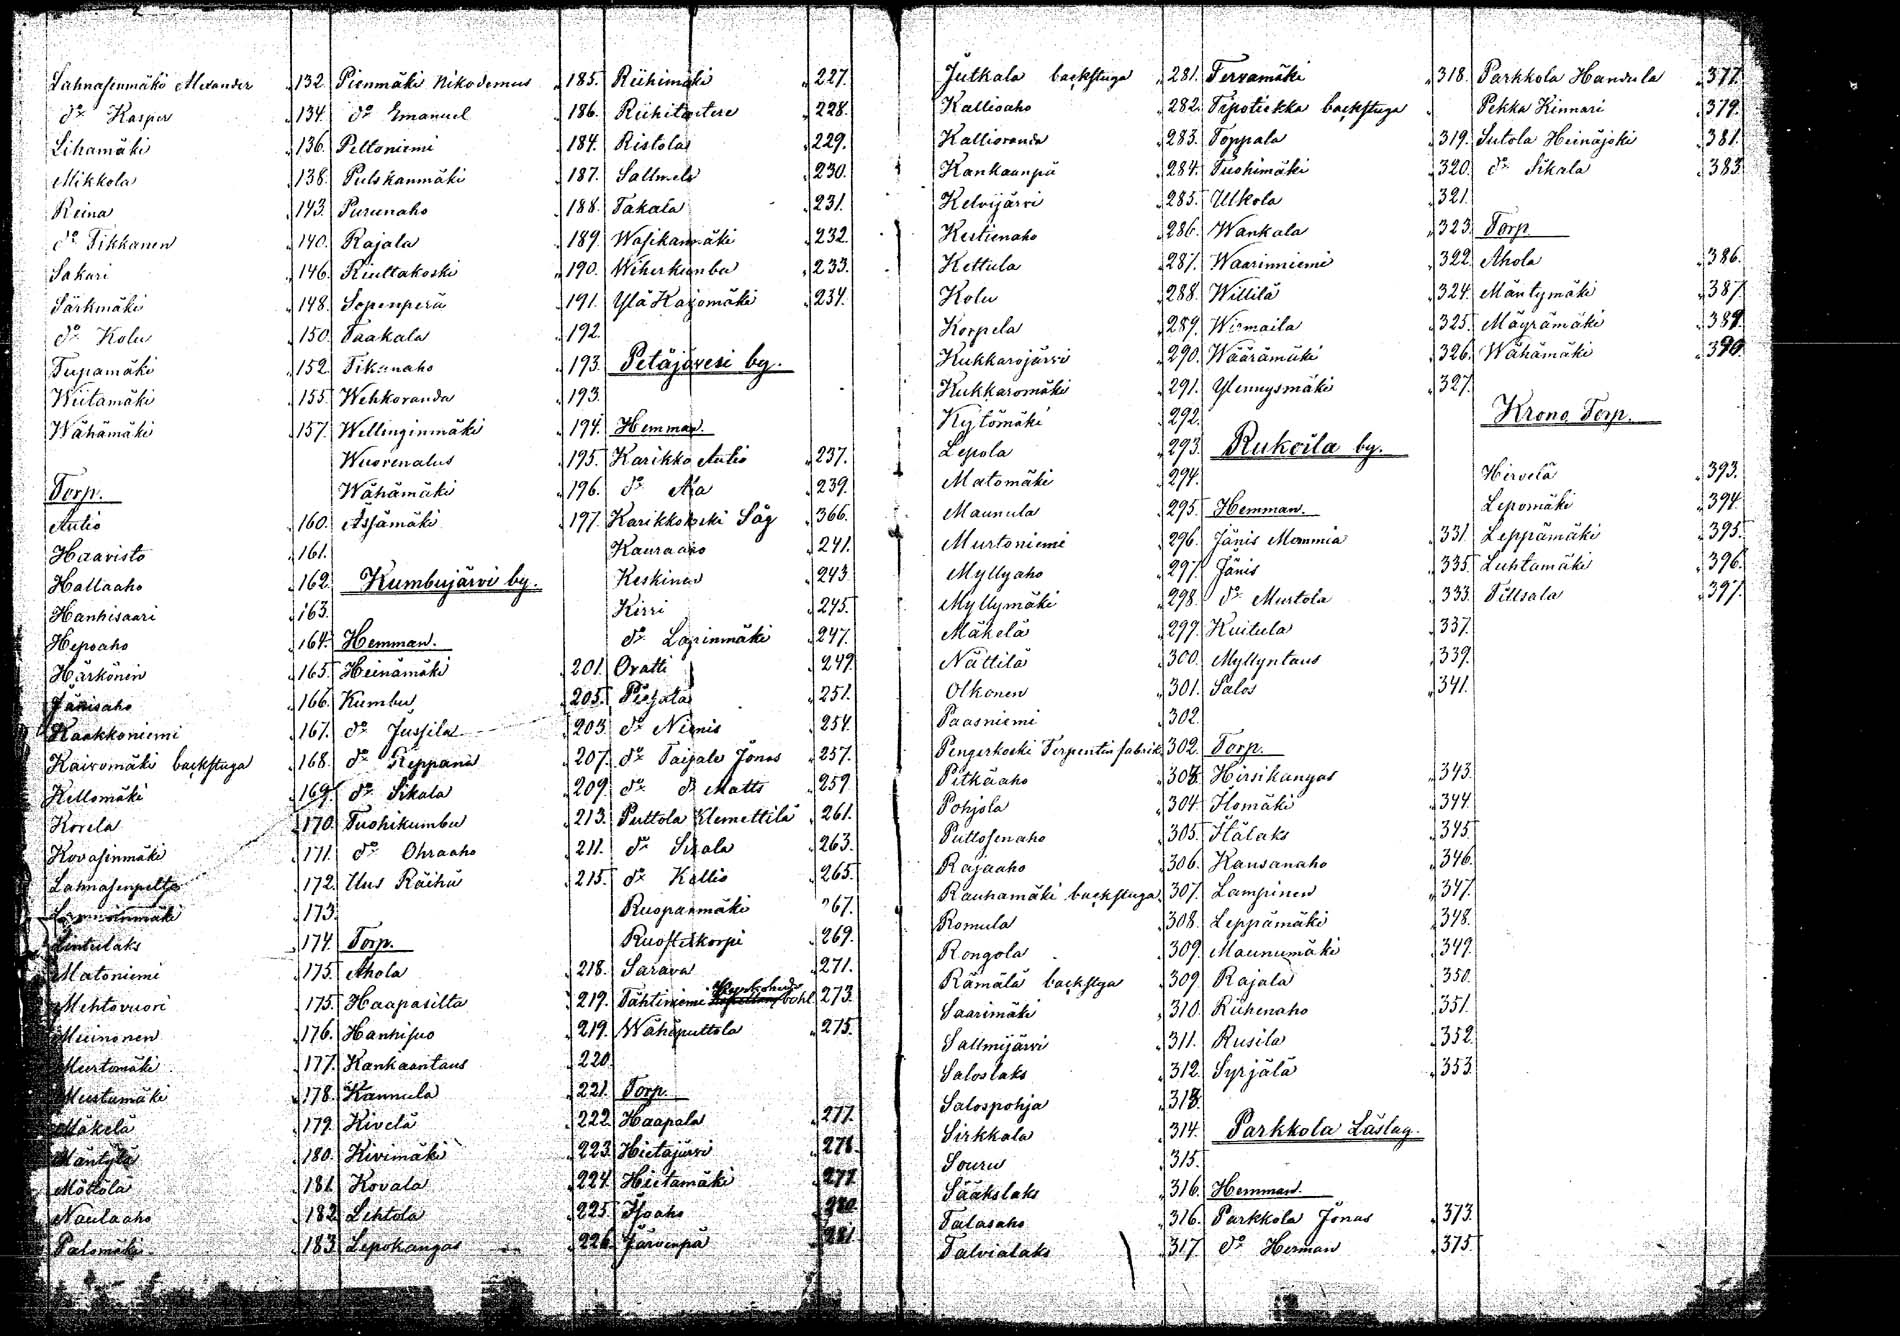 Lahnasenmäki Alexander „132.
d:o Kasper „134.
Lihamäki „136.
Mikkola „138.
Reina „143.
d:o Tikkanen „140.
Sakari „146.
Särkmäki „148.
d:o Kolu „150.
Tupamäki „152.
Wiitamäki „155.
Wähämäki „157.
Torp.
Autio „160.
Haavisto „161.
Hallaaho „162.
Hanhisaari „163.
Hepoaho „164.
Härkönin „165.
Jänisaho „166.
Kaakkoniemi „167.
Kaivomäki backstuga „168.
Kellomäki „169.
Korela „170.
Kovasinmäki „171.
Lahnasenpelto „172.
„173.
Lintulaks „174.
Matoniemi „175.
Mehtovuori „175.
Muinonen „176.
Murtomäki „177.
Mustamäki „178.
Mäkelä „179.
Mäntylä „180.
Möttölä „181.
Naulaaho „182.
Palomäki „183.
Pienmäki Nikodemus „185.
d:o Emanuel „186.
Peltoniemi „184.
Pulskanmäki „187.
Purunaho „188.
Rajala „189.
Riuttakoski „190.
Sopenperä „191.
Taakala „192.
Tikanaho „193.
Wehkoranda „193.
Wellinginmäki „194.
Wuorenalus „195.
Wähämäki „196.
Assämäki „197.
Kumbujärvi by.
Hemman.
Heinämäki „201.
Kumbu „205.
d:o Jussila „203.
d:o Reppana „207.
d:o Sikala „209.
Tuohikumbu „213.
d:o Ohraaho „211.
Uus Räihä „215.
Torp.
Ahola „218.
Haapasilta „219.
Hanhisuo „219.
Kankaantaus „220.
Kannula „221.
Kivelä „222.
Kivimäki „223.
Kovala „224.
Lehtola „225.
Lepokangas „226.
Riihimäki „227.
Riihitaitere „228.
Ristola „229.
Sallmela „230.
Takala „231.
Wasikanmäki „232.
Wiherkumbu „233.
Ylä Kaijomäki „234.
Petäjävesi by.
Hemman.
Karikko Autio „237.
d:o Ala „239.
Karikkokoski Såg „366.
Kauraaho „241.
Keskinen „243.
Kirri „245.
d:o Lapinmäki „247.
Oratti „249.
Piesala „251.
d:o Niemis „254.
d:o Taipale Jonas „257.
d:o d:o Matts „259.
Puttola Klemettilä „261.
d:o Sikala „263.
d:o Kallio „265.
Ruopanmäki 267.
Ruosteskorpi „269.
Sarava „271.
Tähtiniemi bohl. „273.
Wähäputtola „275.
Torp.
Haapala „277.
Hietajärvi „278.
Hietamäki „279.
Isoaho „280.
Järvenpä „281.
Jutkala backstuga „281.
Kallioaho „282.
Kallioranda „283.
Kankaanpä „284.
Kelvijärvi „285.
Kestienaho „286.
Kettula „287.
Kolu „288.
Korpela „289.
Kukkarojärvi „290.
Kukkaromäki „291.
Kytömäki „292.
Lepola „293.
Matomäki „294.
Maunula „295.
Murtoniemi „296.
Myllyaho „297.
Myllymäki „298.
Mäkelä „299.
Nättilä „300.
Olkonen „301.
Paasniemi „302.
Pengerkoski Terpentin fabrik „302.
Pitkäaho „303.
Pohjola „304.
Puttosenaho „305.
Rajaaho „306.
Rauhamäki backstuga „307.
Romula „308.
Rongola „309.
Rämälä backstga „309.
Saarimäki „310.
Sallmijärvi „311.
Saloslaks „312.
Salospohja „313.
Sirkkala „314.
Souru „315.
Sääkslaks „316.
Talasaho „316.
Talvialaks „317.
Tervamäki „318.
Tipotiekka backstuga „
Toppala „319.
Tuohimäki „320.
Ulkola „321.
Wankala „323.
Waarinniemi „322.
Willilä „324.
Wirmaila „325.
Wäärämäki „326.
Ylennysmäki „327.
Rukoila by.
Hemman.
Jänis Mommia „331.
Jänis „335.
d:o Murtola „333.
Kuitula „337.
Myllyntaus „339.
Salos „341.
Torp.
Hirsikangas „343.
Ilomäki „344.
Itälaks „345.
Kansanaho „346.
Lampinen „347.
Leppämäki „348.
Maunumäki „349.
Rajala „350.
Riihenaho „351.
Rusila „352.
Syrjälä „353.
Parkkola Läslag.
Hemman.
Parkkola Jonas „373.
d:o Herman „375.
Parkkola Handula „377.
Pekka Kinnari „379.
Sutola Heinäjoki „381.
d:o Sikala „383.
Torp.
Ahola „386.
Mäntymäki „387.
Mäyrämäki „389.
Wähämäki „390.
Krono Torp.
Hirvelä „393.
Lepomäki „394.
Leppämäki „395.
Luhtamäki „396.
Tillsala „397.